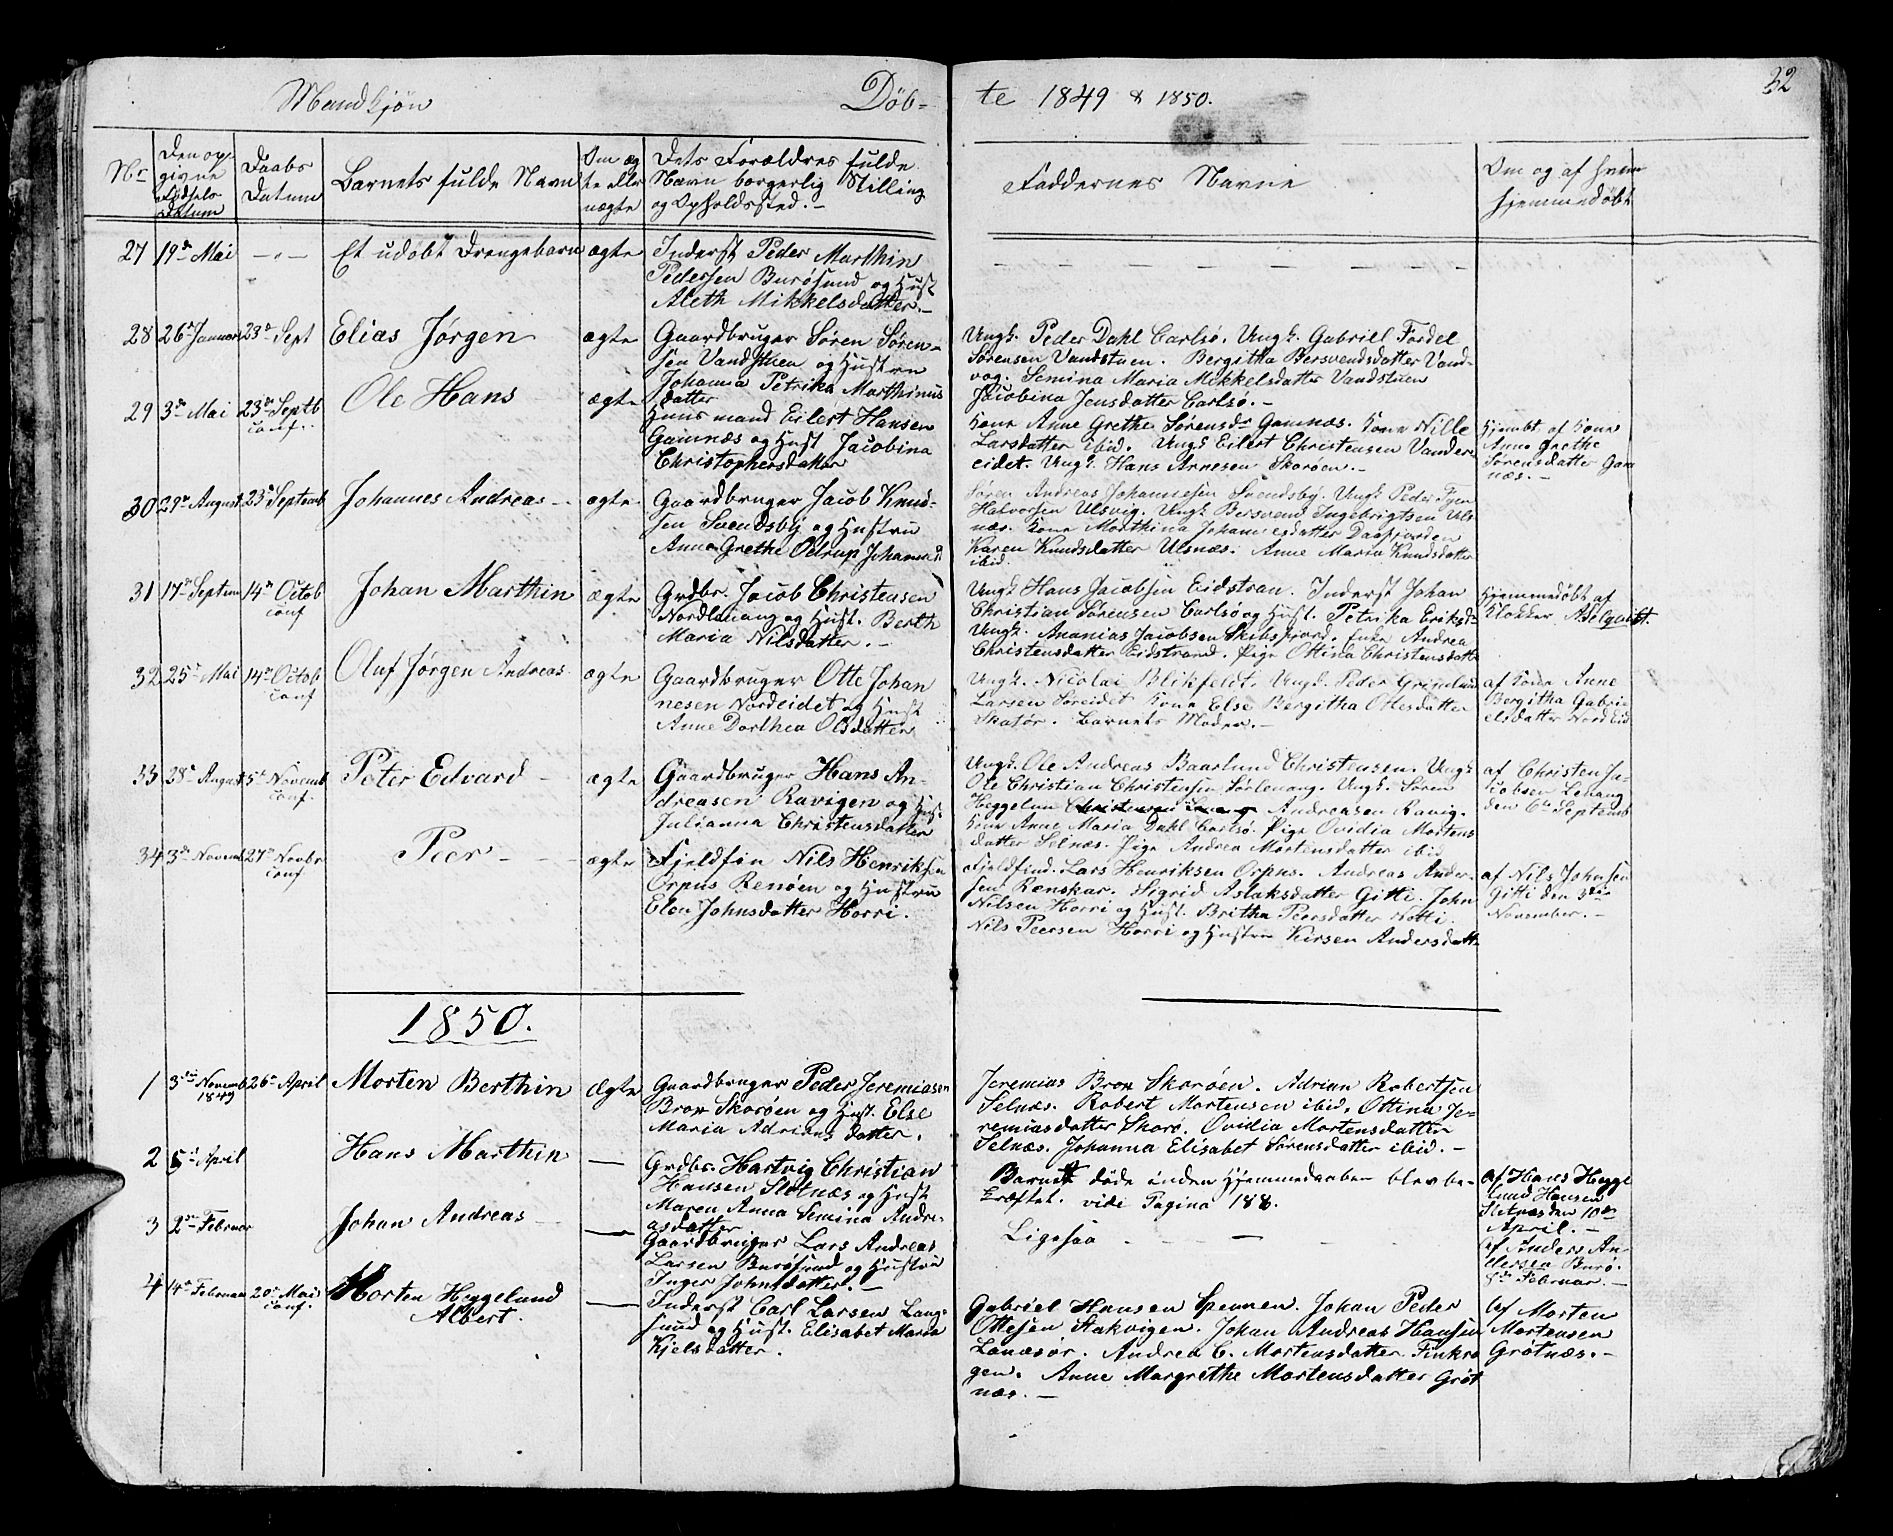 Mandkjøn Døb-
te 1849 & 1850.
32
Nr
Den op-
givne
Fødsels
Datum
Daabs
Datum
Barnets fulde Navn
Om æg
te eller
uægte
Dets Forældres fulde
Navn borgerlig Stilling
og Opholdssted.-
Faddernes Navne
Om og af hvem
hjemmedøbt
27 19de Mai - " - Et udøbt Drengebarn ægte Inderst Peder Marthin
Pedersen Burøsund og Hust
Aleth Mikkelsdatter.-
28 26de Januar 23de Sept Elias Jørgen ægte Gaardbruger Søren Søren-
sen Vandstuen og Hustru
Johanna Petrika Marthinus
datter
Ungk. Peder Dahl Carlsø. Ungk. Gabriel Fordel
Sørensen Vandstuen. Bergitha Bersvendsdatter Vand-
vog. Semina Maria Mikkelsdatter Vandstuen
Jacobina Jensdatter Carlsø.-
29 3de Mai 23de Septb
conf.
Ole Hans ægte Huusmand Eilert Hansen
Gamnæs og Hust Jacobina
Christophersdatter
Kone Anne Grethe Sørensdr Gamnæs. Kone Nille
Larsdatter ibid. Ungk Eilert Christensen Vander-
eidet. Ungk. Hans Arnesen Skorøen.-
Hjembt. af Kone
Anne Grethe
Sørensdatter Gam
næs.-
30 29de August 23de Septemb Johannes Andreas - ægte Gaardbruger Jacob Knud-
sen Svendsby og Hustru
Anne Grethe Ostrup Johannesd
Søren Andreas Johannesen Svendsby. Ungk Peder
Halvorsen Ulsvig. Ungk Bersvend Ingebrigtsen Uls
næs. Kone Marthina Johannesdatter
Karen Knudsdatter Ulsnæs. Anne Maria Knudsdatter
ibid.
31 17de Septem 14de Octob
conf
Johan Marthin ægte Grdbr. Jacob Christensen
Nordlenang og Hust. Berth
Maria Nilsdatter.-
Ungk Hans Jacobsen Eidstran. Inderst Johan
Christian Sørensen Carlsø og Hust. Petrika Eriksdr
Ungk. Ananias Jacobsen Skibsfjord. Enke Andrea
Christensdatter Eidstrand. Pige Ottina Christensdatt
Hjemmedøbt af
Klokker Adelqvist.
32 25de Mai 14de Octob
conf
Oluf Jørgen Andreas ægte Gaardbruger Otte Johan
nesen Nordeidet og Hust
Anne Dorthea Olsdatter
Ungk. Nicolai Blikfeldt. Ungk. Peder Grønlund
Larsen Søreidet Kone Else Bergitha Ottesdatter
Skatør. Barnets Moder.-
af Kone Anne
Bergitha Gabrie
elsdatter Nord Eid
33 28de August 5te Novemb
conf.
Peter Edvard - ægte Gaardbruger Hans An-
dreasen Ravigen og Hust.
Julianna Christensdatter
Ungk. Ole Andreas Baarlund Christensen. Ungk
Ole Christian Christensen Sørlenang. Ungk. Søren
Heggelun Andreasen Ravig.
Kone Anne Maria Dahl Carlsø. Pige Ovidia Mortens
datter Selnæs. Pige Andrea Mortensdatter ibid
af Christen Ja-
cobsen Lenang
den 6te Septemb
34 3de Novemb 27de Novbr
conf
Peer - ægte Fjeldfin Nils Henriksen
Orpus Renøen og Hustru
Elen Johnsdatter Horri.
Fjeldfind. Lars Henriksen Orpus. Andreas Ander-
sen Renskar. Sigrid Aslaksdatter Gitti. John
Nilsen Horri og Hust. Britha Peersdatter Notti.
Nils Peersen Horri og Hustru Kirsen Andersdatt.
af Nils Johnsen
Gitti den 3die
November.-
1850.
1 3die Novemb
1849
26de April Morten Berthin Ægte Gaardbruger Peder Jeremiasen
Brox Skorøen og Hust. Else
Maria Adriansdatter.
Jeremias Brox Skorøen. Adrian Robertsen
Selnæs. Robert Mortensen ibid. Ottina Je-
remiasdatter Skorø. Ovidia Mortensdatter
Selnæs. Johanna Elisabet Sørensdatter ibid.-
2 5te April Hans Marthin - Grdbr. Hartvig Christian
Hansen Sletnæs og Hust
Maren Anna Semina Andre-
asdatter
Barnet døde inden Hjemmedaaben blev be-
kræftet. vide Pagina 188.
af Hans Hegge
lund Hansen
Sletnæs den 10de
April.-
3 2den Februar Johan Andreas - - Gaardbruger Lars Andreas
Larsen Burøsund og Hustru
Inger Johnsdatter.-
Ligesaa
af Anders An-
dersen Burø.
8de Februar.-
4 4de Februar 20de Mai
conf.
Morten Heggelund
Albert.
- Inderst Carl Larsen Lang-
sund og Hust. Elisabet Maria
Kjelsdatter.
Gabriel Hansen Spennen. Johan Peder
Ottesen Stakvigen. Johan Andreas Hansen
Lanæsør. Andrea C. Mortensdatter Finkro
gen. Anne Margrethe Mortensdatter Grøt
næs.-
Af Morten
Mortensen
Grøtnæs.-